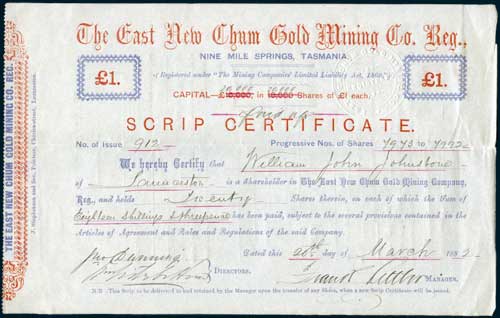 The East New Chum Gold Mining Co. Reg.,
NINE MILE SPRINGS, TASMANIA.
Registered under "The Mining Companies' Limited Liability Act,
£1.
£1.
CAPITAL—£10,000, in 10,000 Shares of £1 each.
SCRIP CERTIFICATE.
No. of Issue 912 Progressive Nos. of Shares 7973 to 7992
We hereby Certify that William John Johnstone
of Launceston is a Shareholder in The East New Chum Gold Mining Company,
Reg., and holds Twenty Shares therein, on each of which the Sum of
Eighteen shillings & threepence has been paid, subject to the several provisions contained in the
Articles of Agreement and Rules and Regulations of the said Company.
Dated this 20th day of March 1882
DIRECTORS.
MANAGER.
N.B. This Scrip to be delivered to and retained by the Manager upon the transfer of any Shares, when a new Scrip Certificate will be issued.
THE EAST NEW CHUM GOLD MINING CO. REG.
J. Stephenson and Son, Printers, Launceston.